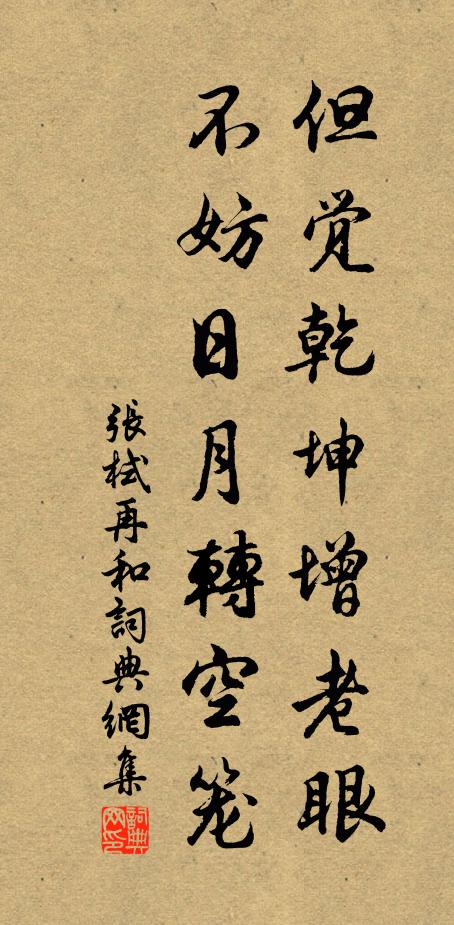 但覚乾坤增老眼
不妨日月轉空笼
張栻再和詞典網集
詞典網印